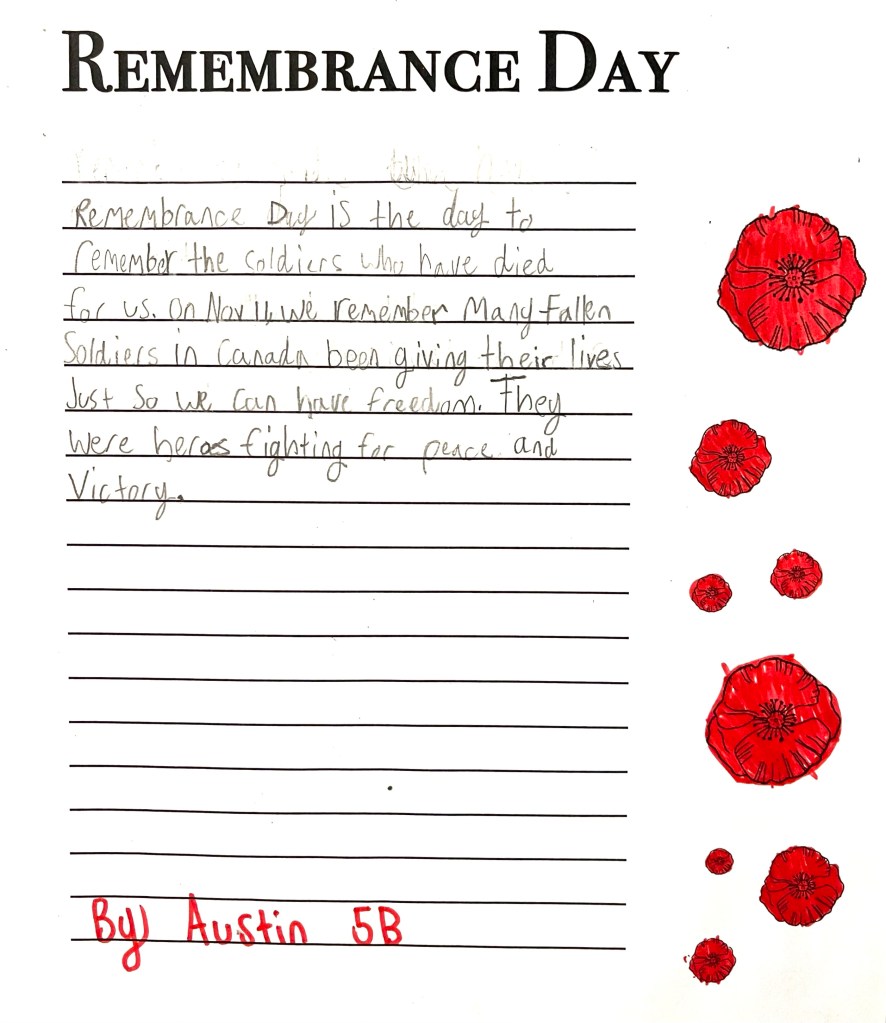 REMEMBRANCE DAY
Remembrance Day is the day to
remember the soldiers who have died
for us. On Nov 11, we remember Many Fallen
Soldiers in Canada been giving their lives
Just So we can have freedom. They
were heroes fighting for peace and
Victory.
By) Austin 5B